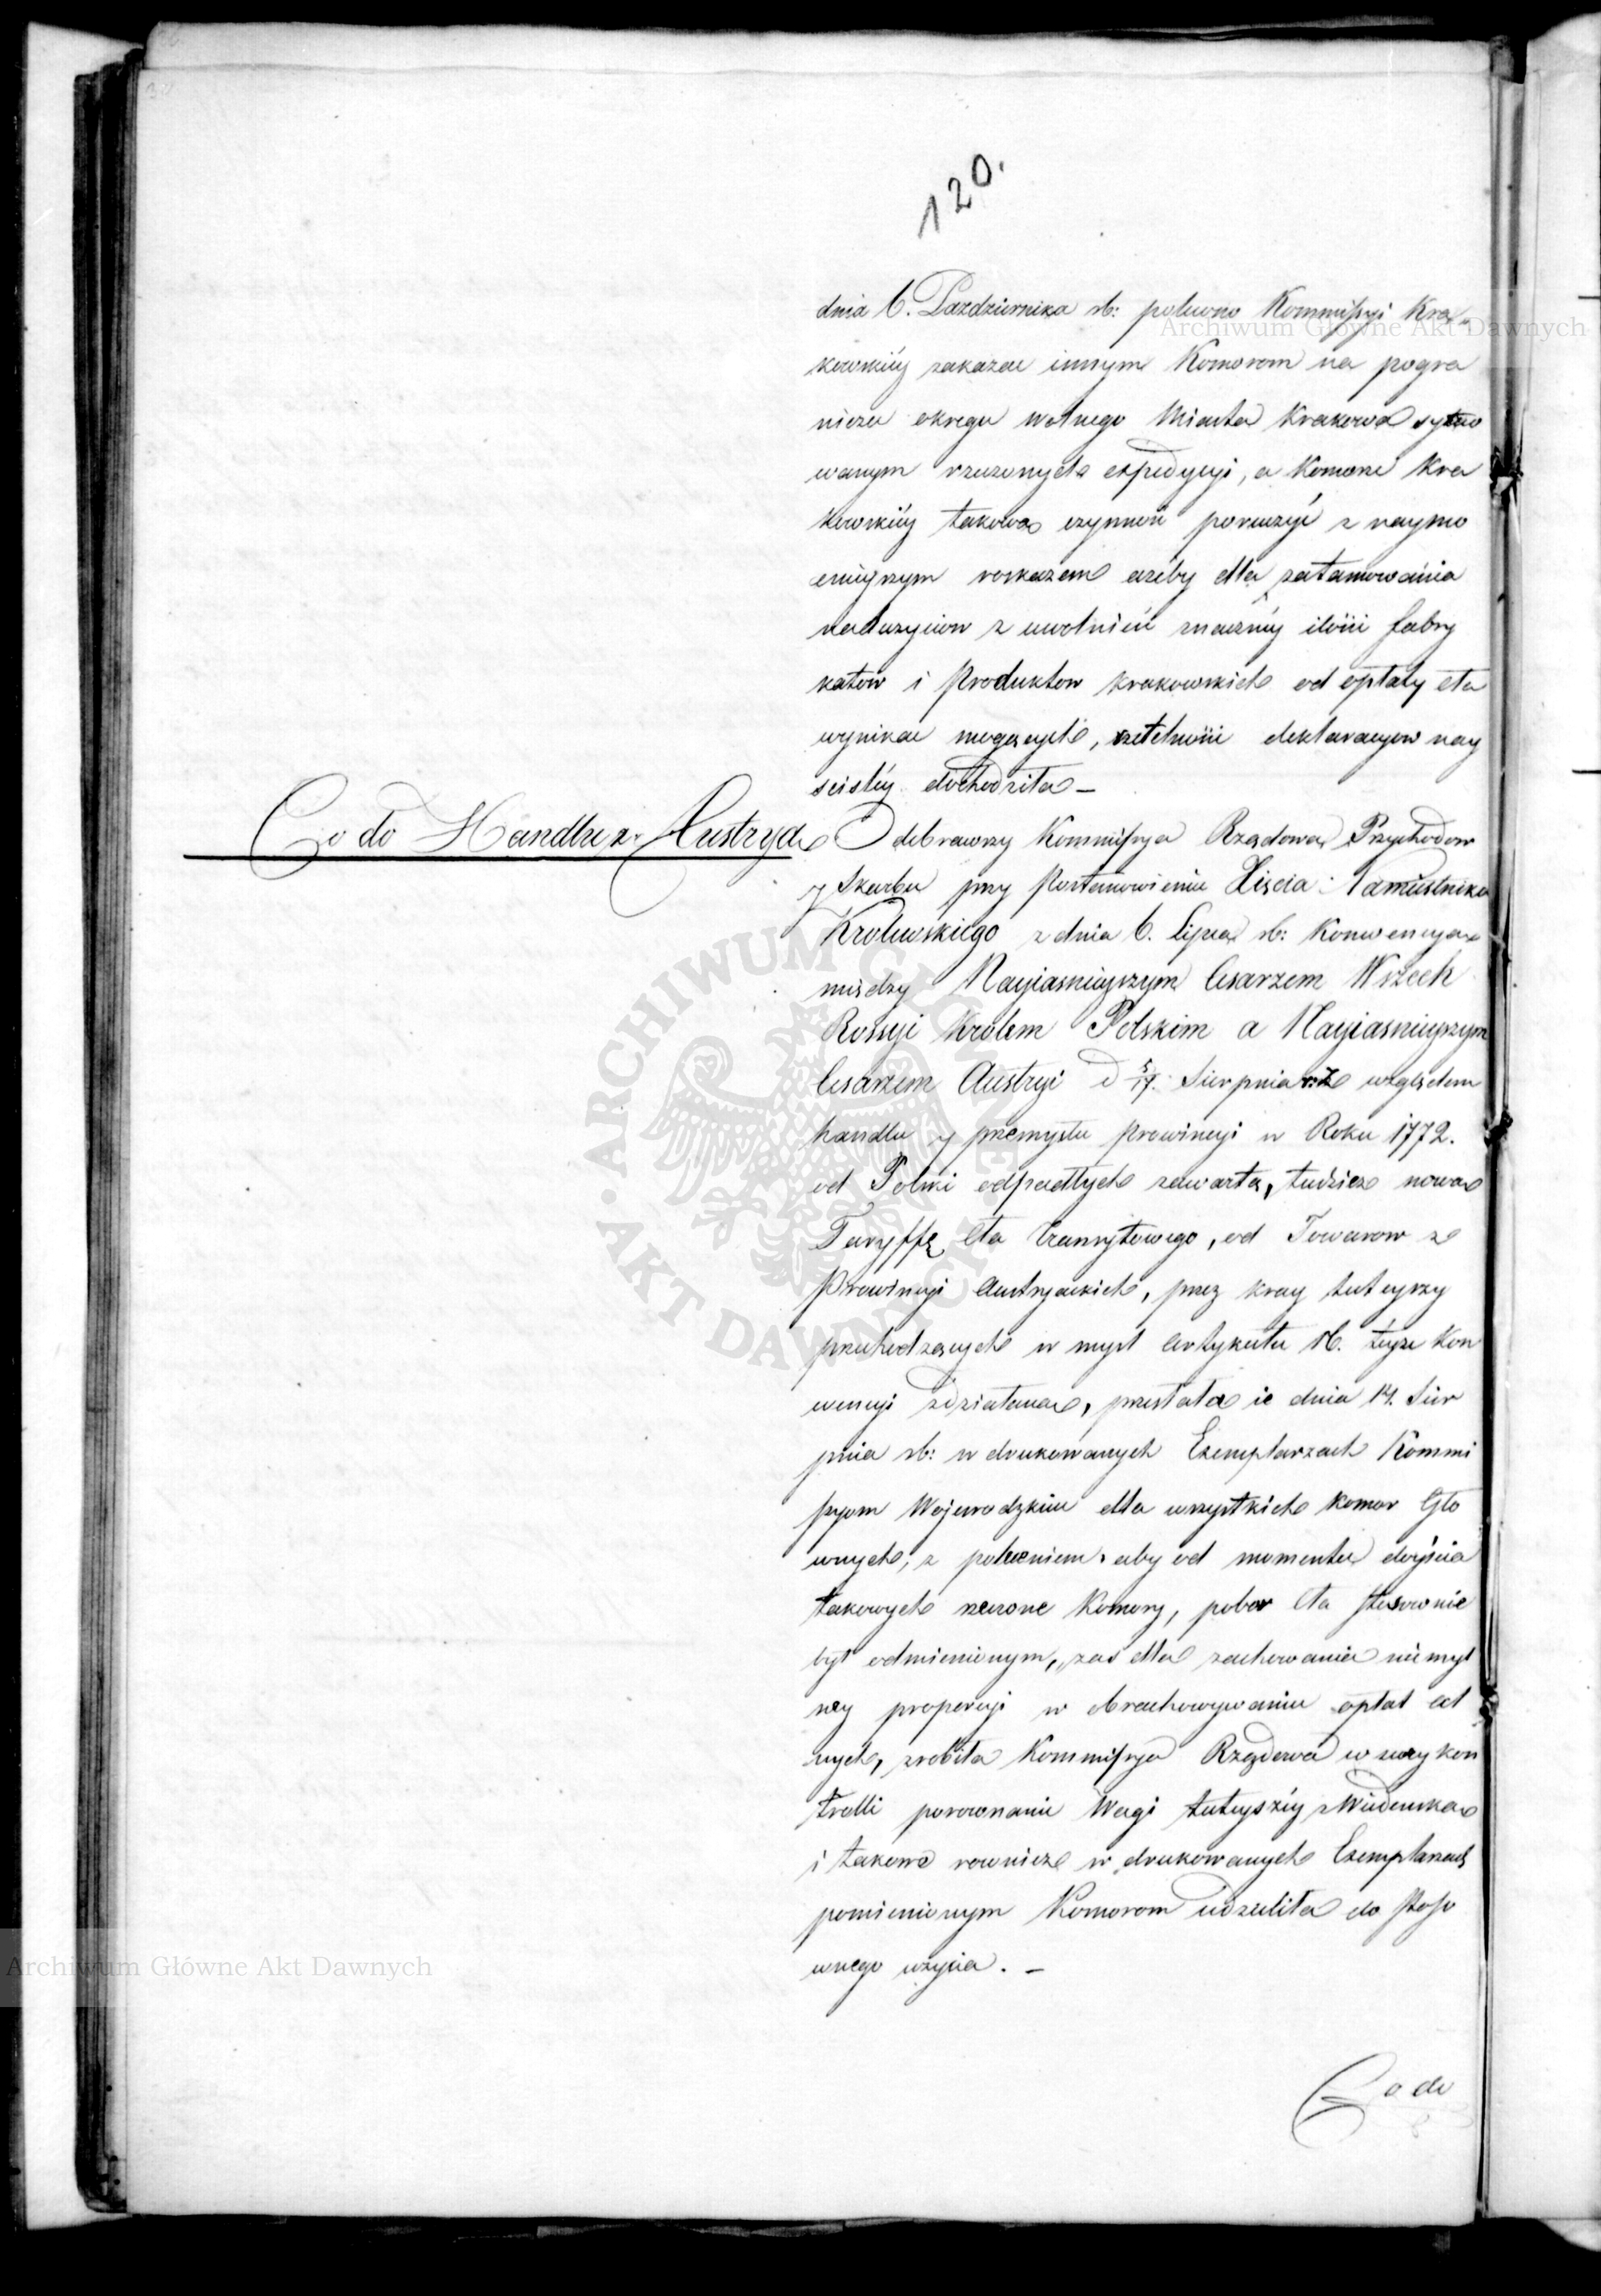 120.
dnia 6. Pazdziernika rb: polecono Kommissyi Kra-
kowskiéy zakazac innym Komorom na pogra
niczu okręgu wolnego Miasta Krakowa sytuo
wanym rzeczonych expedycyi, a Komorze Kra
kowskiéy takową czynność poruczyć z naymo
cnieyszym roskazem ażeby dla zatamowania
nadużyciow z uwolnień znacznéy ilości fabry
katow i Produktow krakowskich od opłaty cła
wynikac mogących, rzetelności deklaracyow nay
ścisléy dochodziła —
Co do Handlu z Austryą
Odebrawszy Kommissya Rządowa Przychodow
y Skarbu przy Postanowieniu Xięcia Namiestnika
Krolewskiego z dnia 6. Lipca rb: Konwencyą
między Nayiasnieyszym Cesarzem Wszech
Rossyi Krolem Polskim a Nayiasnieyszym
Cesarzem Austryi d 5/17. Sierpnia względem
handlu y przemysłu Prowincyi w Roku 1772.
od Polski odpadłych zawartą, tudzież nową
Taryffę Cła tranzytowego, od Towarow z
Prowincyi Austryackich, przez kray tuteyszy
przechodzących w myśl Artykułu 16. teyże Kon
wencyi zdziałaną, przesłała ie dnia 14. Sier
pnia rb: w drukowanych Exemplarzach Kommi
ssyom Wojewodzkim dla wszystkich komor Gło
wnych, z poleceniem, aby od momentu doyścia
takowych rzeczone Komory, pobor Cła stosownie
był odmienionym, zaś dla zachowania niemyl
ney proporcyi w obrachowywaniu opłat cel
nych, zrobiła Kommissya Rządowa w swey kon
trolli porownanie Wagi tuteyszéy z Wiedenską
i takowe rownież w drukowanych Exemplarzach
pomienionym Komorom udzieliła do stoso
wnego użycia. —
Co do
Archiwum Główne Akt Dawnych
Archiwum Główne Akt Dawnych
ARCHIWUM GŁÓWNE · AKT DAWNYCH ·